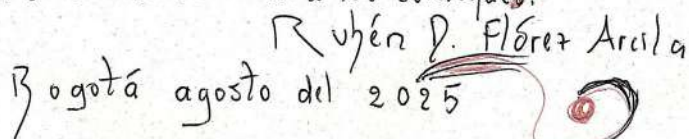 Rubén D. Flórez Arcila
Bogotá agosto del 2025